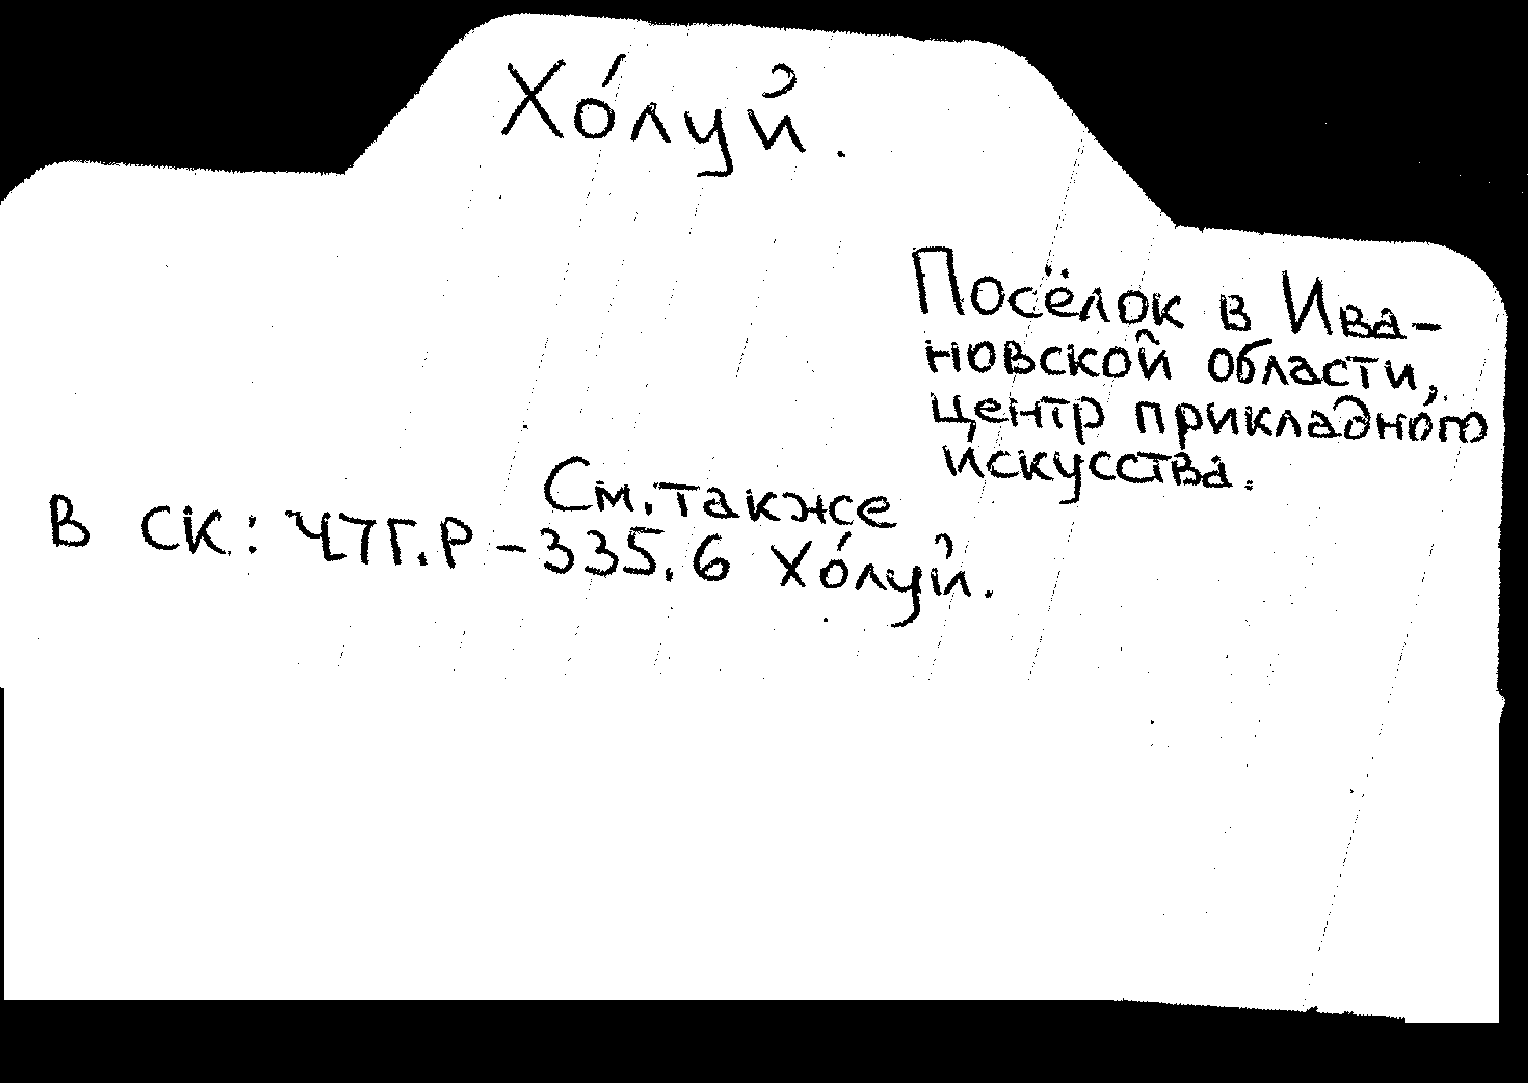 Хо́луй.
Посёлок в Ива-
новской области,
центр прикладного
искусства.
См. также
В СК: Ч7Г.Р - 335.6 Хо́луй.